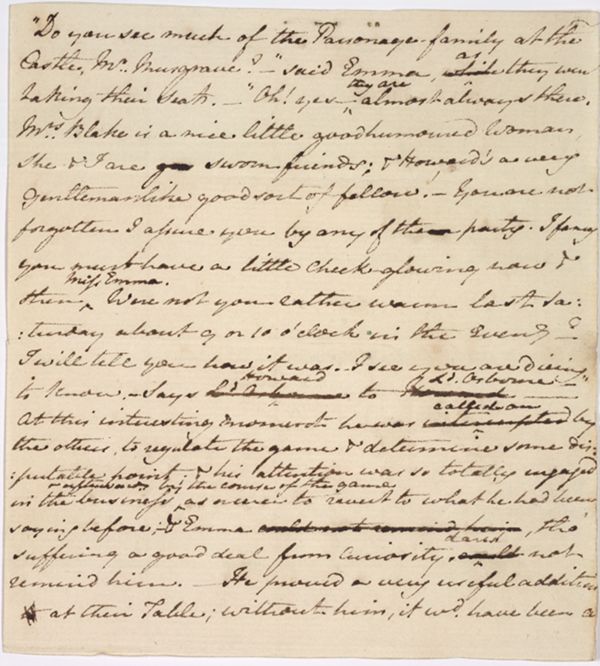 "Do you see much of the Parsonage family at the
Castle, Mr. Musgrave? —" said Emma, as while they were
taking their seats. — "Oh! yes — they are almost always there.
Mrs. Blake is a nice little goodhumoured Woman,
She & I are sworn friends; & Howard's a very
gentlemanlike good sort of fellow. — You are not
forgotten I assure you by any of the party. I fancy
you must have a little Cheek-glowing now &
then, Miss Emma. Were not you rather warm last Sa-
:turday about 9 or 10 o'clock in the Eveng —?
I will tell you how it was. — I see you are dieing
to know. — Says Ld. Osborne Howard to Howard Ld. Osborne —"
At this interesting moment he was interrupted called on by
the others, to regulate the game & determine some dis-
:putable point; & his attention was so totally engaged
in the business & afterwards by the course of the game
as never to revert to what he had been
saying before; — & Emma could not remind him, tho'
suffering a good deal from Curiosity, could dared not
remind him. — He proved a very useful addition
at their Table; without him, it wd. have been a